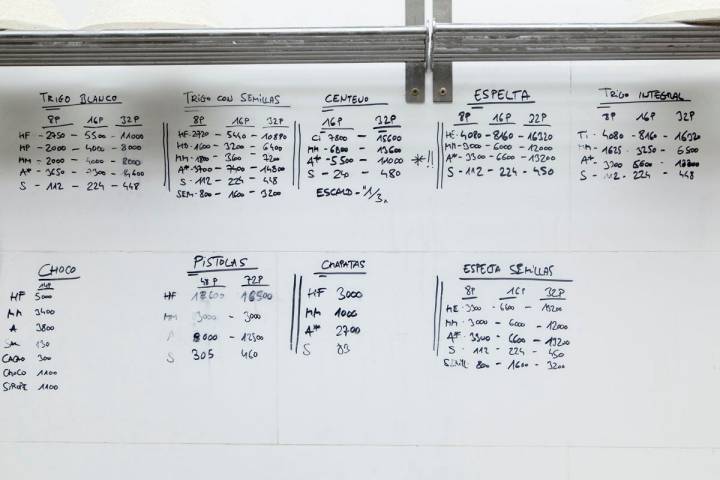 TRIGO BLANCO
8P 16P 32P
HF - 2750 - 5500 - 11000
MP - 2000 - 4000 - 8000
MM - 2000 - 4000 - 8000
A* - 3650 - 7300 - 14600
S - 112 - 224 - 448
TRIGO CON SEMILLAS
8P 16P 32P
HF - 2720 - 5440 - 10880
- 1600 - 3200 - 6400
MM - 1800 - 3600 - 7200
A* - 3700 - 7400 - 14800
S - 112 - 224 - 448
SEM - 800 - 1600 - 3200
CENTENO
16P 32P
CI 7800 - 15600
MM - 6800 - 13600
A* - 5500 - 11000
S - 240 - 480
ESCALD - "1/3"
*!!
ESPELTA
8P 16P 32P
HE - 4080 - 8160 - 16320
MM - 3000 - 6000 - 12000
A* - 3300 - 6600 - 13200
S - 112 - 224 - 450
TRIGO INTEGRAL
8P 16P 32P
TI - 4080 - 8160 - 16320
MM - 1625 - 3250 - 6500
A* 3300 6600
S - 112 - 224 - 448
CHOCO
HF 5000
MM 3400
A 3800
130
CACAO 300
CHOCO 1100
SIROPE 1100
PISTOLAS
48P 72P
HF 16500
MM 3000 - 3000
A 8000 - 12500
S 305 460
CHAPATAS
HF 3000
MM 1000
A* 2700
S 83
ESPELTA SEMILLAS
8P 16P 32P
HE - 3300 - 6600 - 13200
MM - 3000 - 6000 - 12000
A* - 3300 - 6600 - 13200
S - 112 - 224 - 450
SEMILL - 800 - 1600 - 3200